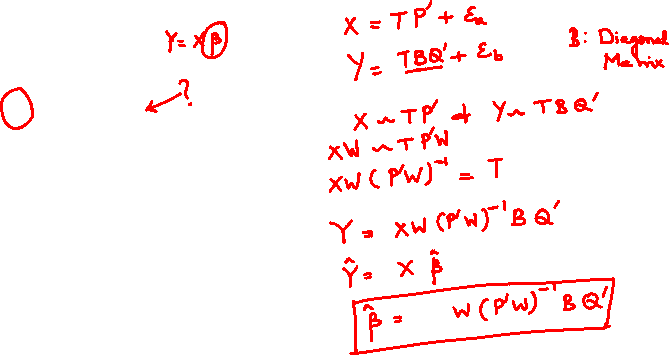 Y = Xβ
?
X = TP' + εa
Y = TBQ' + εb
B: Diagonal
Matrix
X ~ TP' & Y ~ TBQ'
XW ~ TP'W
XW (P'W)⁻¹ = T
Y = XW (P'W)⁻¹ BQ'
Ŷ = X β̂
β̂ = W (P'W)⁻¹ BQ'